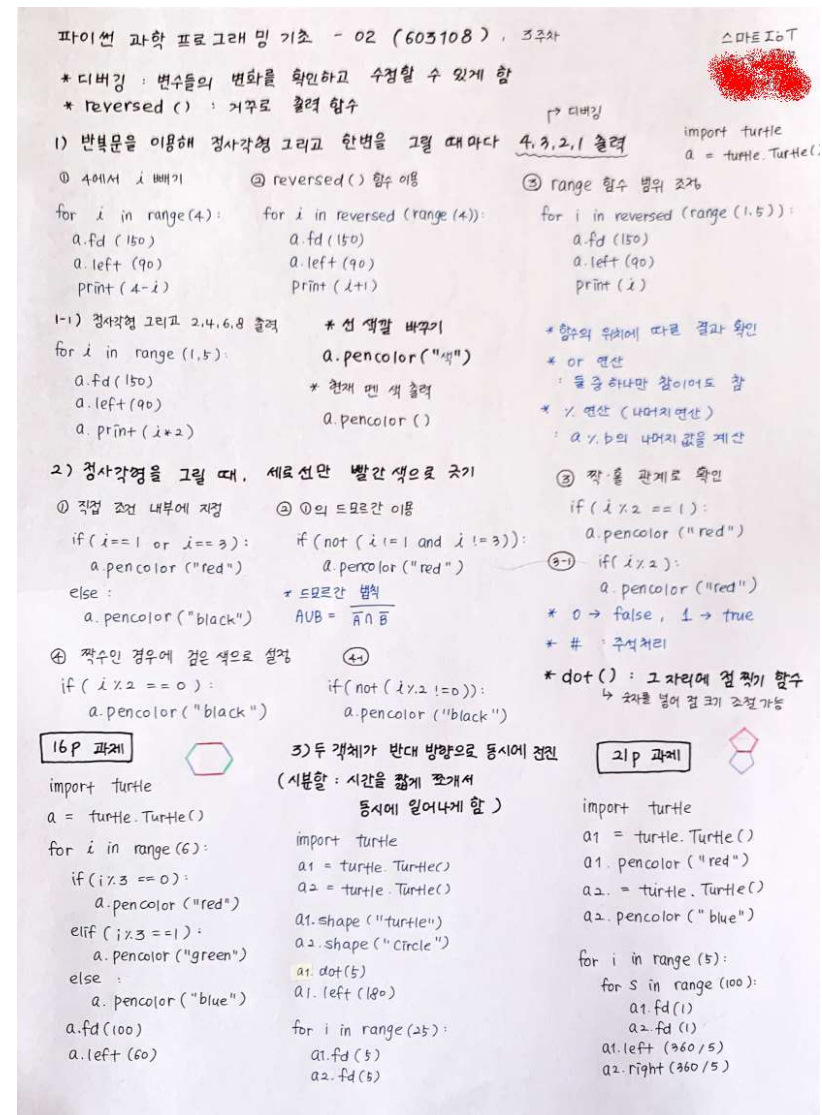 파이썬 과학 프로그래밍 기초 - 02 (603108), 3주차
스마트IoT
* 디버깅 : 변수들의 변화를 확인하고 수정할 수 있게 함
* reversed () : 거꾸로 출력 함수
↱ 디버깅
1) 반복문을 이용해 정사각형 그리고 한변을 그릴 때마다 4,3,2,1 출력
import turtle
a = turtle.Turtle()
① 4에서 i 빼기
for i in range(4):
a.fd (150)
a.left (90)
print (4-i)
② reversed() 함수 이용
for i in reversed (range (4)):
a.fd (150)
a.left (90)
print (i+1)
③ range 함수 범위 조정
for i in reversed (range (1.5)):
a.fd (150)
a.left (90)
print (i)
1-1) 정사각형 그리고 2,4,6,8 출력
for i in range (1,5):
a.fd (150)
a.left (90)
a.print (i*2)
* 선 색깔 바꾸기
a.pencolor ("색")
* 현재 펜 색 출력
a.pencolor ()
* 함수의 위치에 따른 결과 확인
* or 연산
: 둘 중 하나만 참이어도 참
* % 연산 (나머지 연산)
: a % b의 나머지 값을 계산
2) 정사각형을 그릴 때, 세로선만 빨간색으로 긋기
① 직접 조건 내부에 지정
if (i==1 or i==3):
a.pencolor ("red")
else :
a.pencolor ("black")
② ①의 드모르간 이용
if (not (i != 1 and i != 3)):
a.pencolor ("red")
* 드모르간 법칙
A∪B = A̅∩B̅
③ 짝·홀 관계로 확인
if (i%2 == 1):
a.pencolor ("red")
③-1 if (i%2):
a.pencolor ("red")
* 0 → false, 1 → true
* # : 주석처리
* dot () : 그 자리에 점 찍기 함수
↳ 숫자를 넣어 점 크기 조절 가능
④ 짝수인 경우에 검은 색으로 설정
if (i%2 == 0):
a.pencolor ("black")
④-1
if (not (i%2 !=0)):
a.pencolor ("black")
16p 과제
import turtle
a = turtle.Turtle()
for i in range (6):
if (i%3 == 0):
a.pencolor ("red")
elif (i%3 ==1):
a.pencolor ("green")
else :
a.pencolor ("blue")
a.fd (100)
a.left (60)
3) 두 객체가 반대 방향으로 동시에 전진
(시분할 : 시간을 짧게 쪼개서
동시에 일어나게 함)
import turtle
a1 = turtle.Turtle()
a2 = turtle.Turtle()
a1.shape ("turtle")
a2.shape ("Circle")
a1.dot(5)
a1.left (180)
for i in range (25):
a1.fd (5)
a2.fd (5)
21p 과제
import turtle
a1 = turtle.Turtle ()
a1.pencolor ("red")
a2. = turtle.Turtle()
a2.pencolor ("blue")
for i in range (5):
for s in range (100):
a1.fd (1)
a2.fd (1)
a1.left (360/5)
a2.right (360/5)